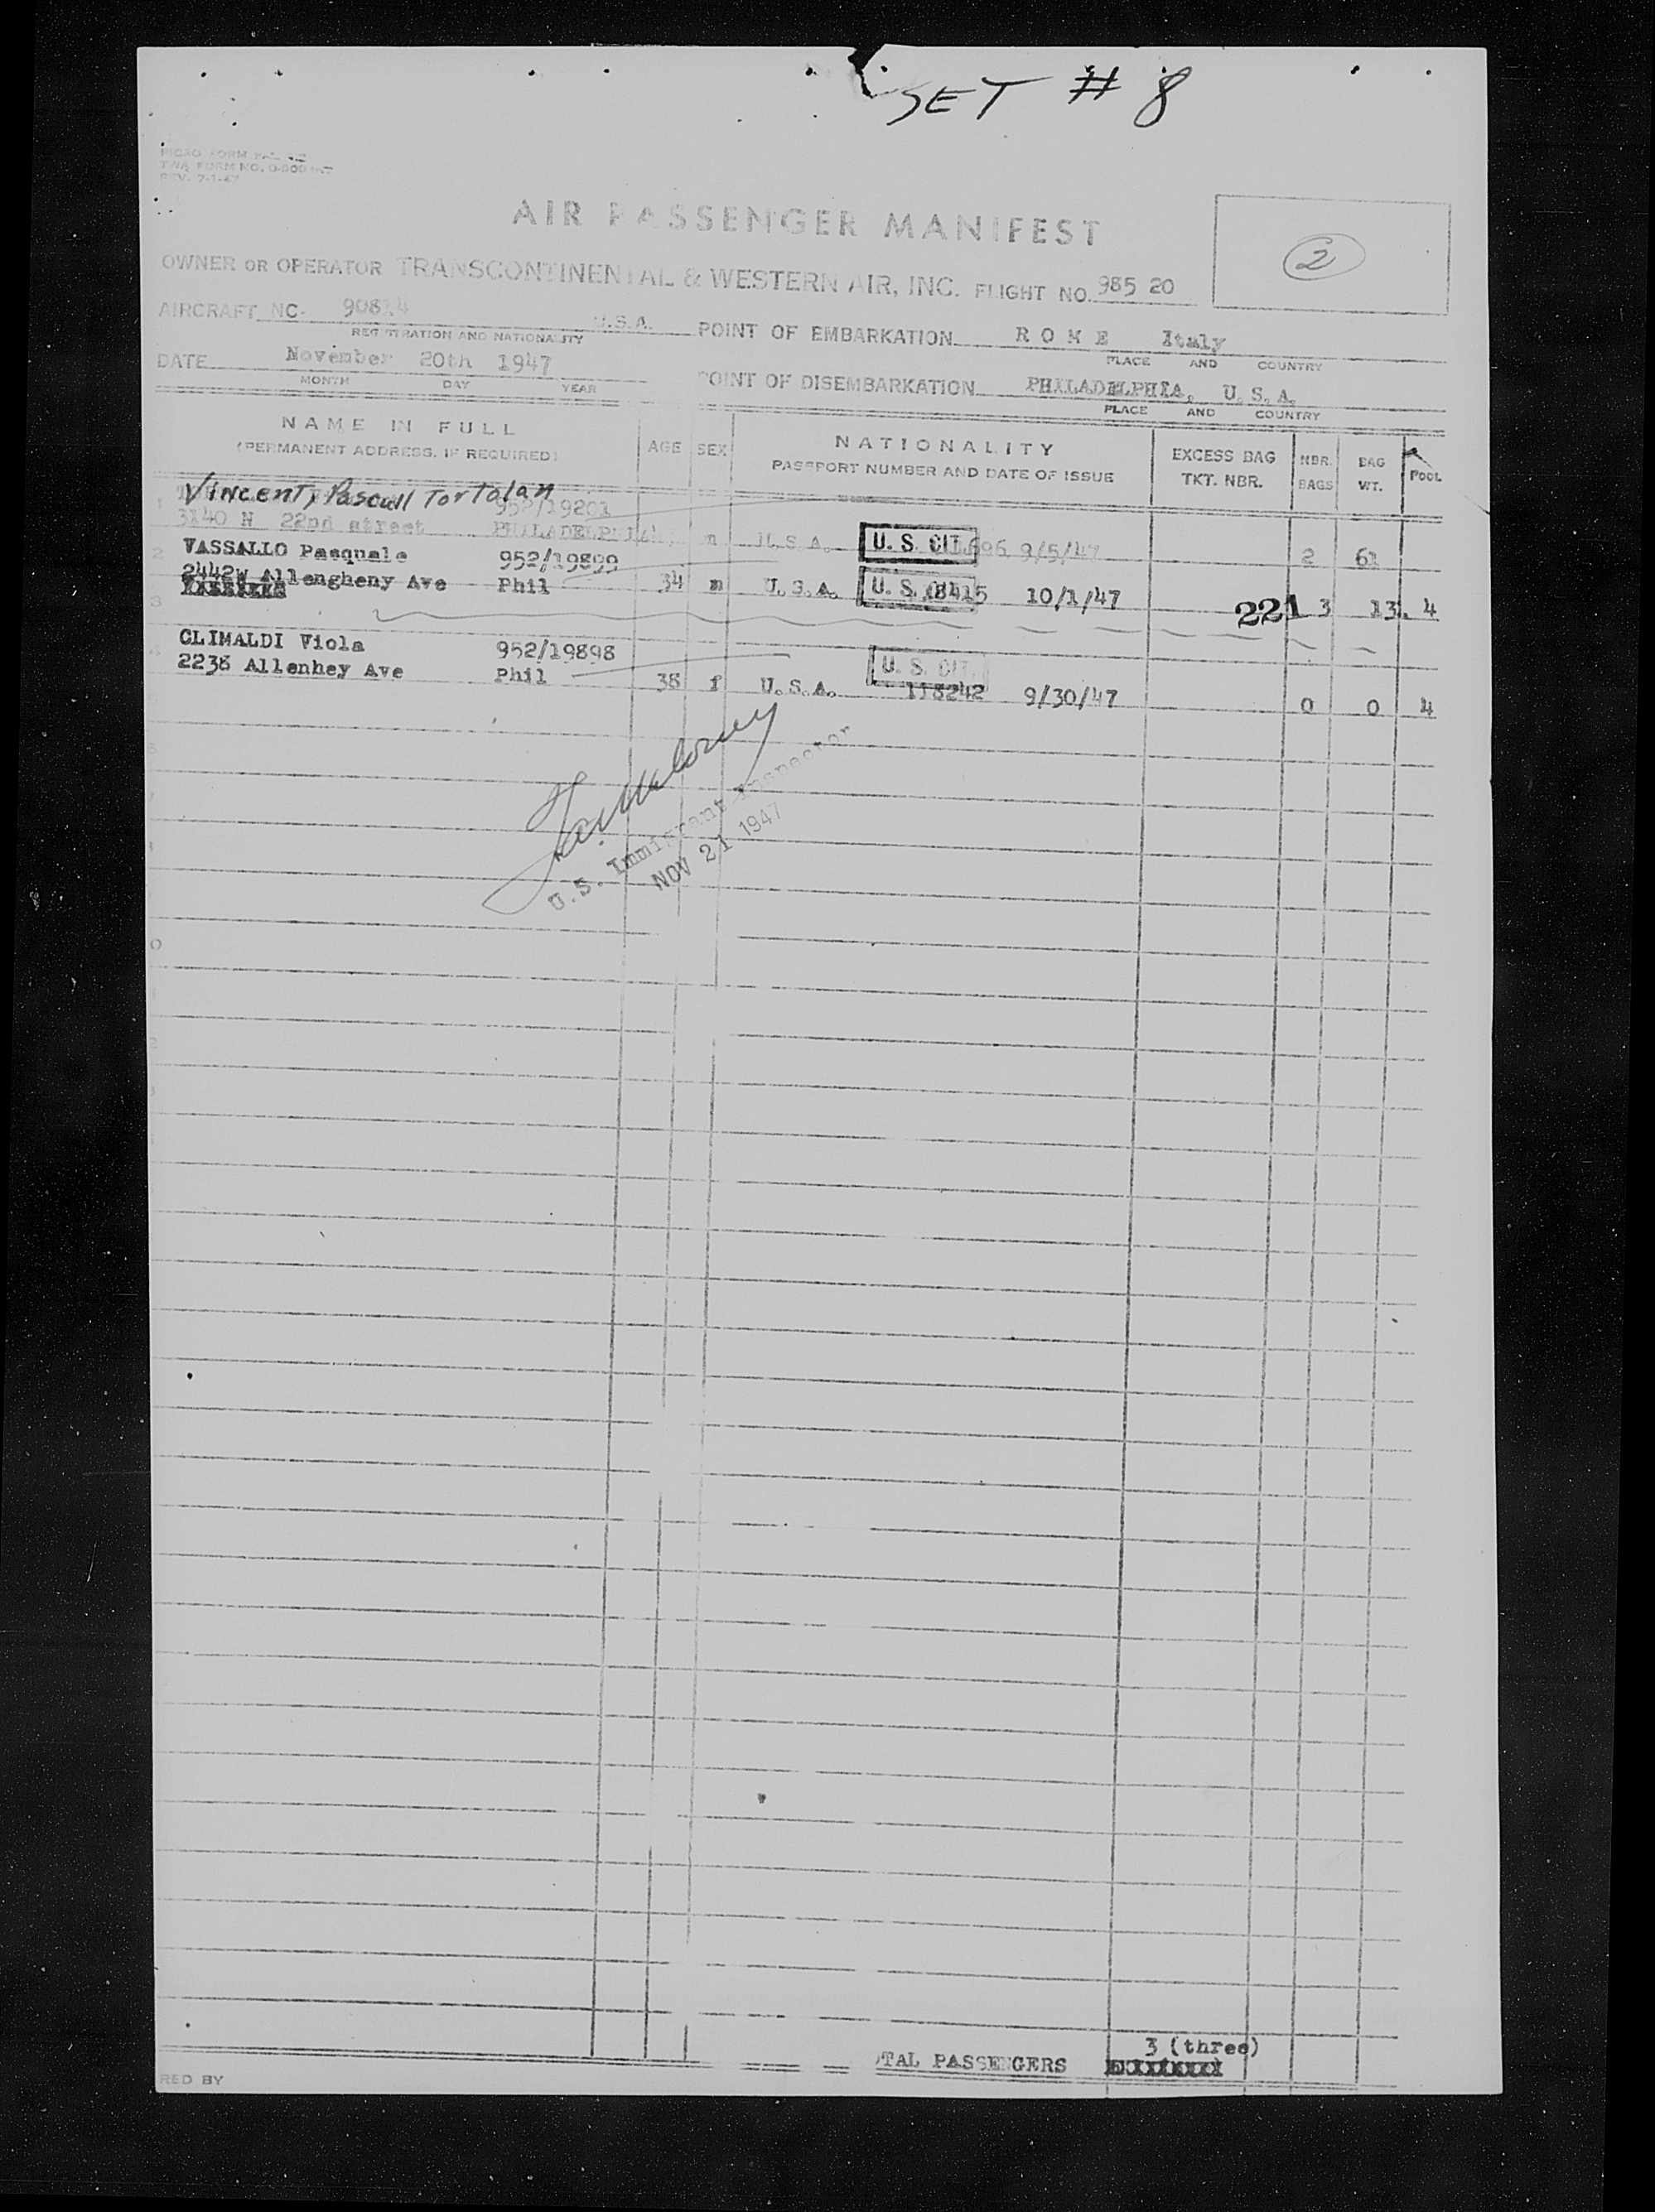 SET # 8
REV. 7-1-47
AIR PASSENGER MANIFEST
2
OWNER OR OPERATOR TRANSCONTINENTAL & WESTERN AIR, INC. FLIGHT NO. 985 20
AIRCRAFT NC- U.S.A. POINT OF EMBARKATION R O M E Italy
REGISTRATION AND NATIONALITY PLACE AND COUNTRY
DATE November 20th 1947 POINT OF DISEMBARKATION PHILADELPHIA, U.S.A.
MONTH DAY YEAR PLACE AND COUNTRY
NAME IN FULL AGE SEX NATIONALITY EXCESS BAG NBR. BAG POOL
(PERMANENT ADDRESS, IF REQUIRED) PASSPORT NUMBER AND DATE OF ISSUE TKT. NBR. BAGS WT.
Vincent, Pascull Tortolan
1 952/19201
3140 N 22nd street PHILADELPHIA m U.S.A. U. S. CIT. 9/5/47 2 61
2 VASSALLO Pasquale 952/19899
2442w Allengheny Ave Phil 34 m U.S.A. U. S. 10/1/47 221 3 13. 4
3
4 CLIMALDI Viola 952/19898 U. S. CIT.
2238 Allenhey Ave Phil 38 f U.S.A. 118242 9/30/47 0 0 4
U.S. Immigrant Inspector
NOV 21 1947
3 (three)
TAL PASSENGERS
RED BY